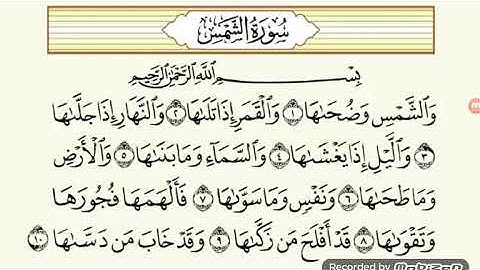 سُورَةُ الشَّمْسِ
بِسْمِ اللَّهِ الرَّحْمَٰنِ الرَّحِيمِ
وَالشَّمْسِ وَضُحَىٰهَا ١ وَالْقَمَرِ إِذَا تَلَىٰهَا ٢ وَالنَّهَارِ إِذَا جَلَّىٰهَا
٣ وَالَّيْلِ إِذَا يَغْشَىٰهَا ٤ وَالسَّمَآءِ وَمَا بَنَىٰهَا ٥ وَالْأَرْضِ
وَمَا طَحَىٰهَا ٦ وَنَفْسٍ وَمَا سَوَّىٰهَا ٧ فَأَلْهَمَهَا فُجُورَهَا
وَتَقْوَىٰهَا ٨ قَدْ أَفْلَحَ مَن زَكَّىٰهَا ٩ وَقَدْ خَابَ مَن دَسَّىٰهَا ١٠
Recorded by MOBIZEN